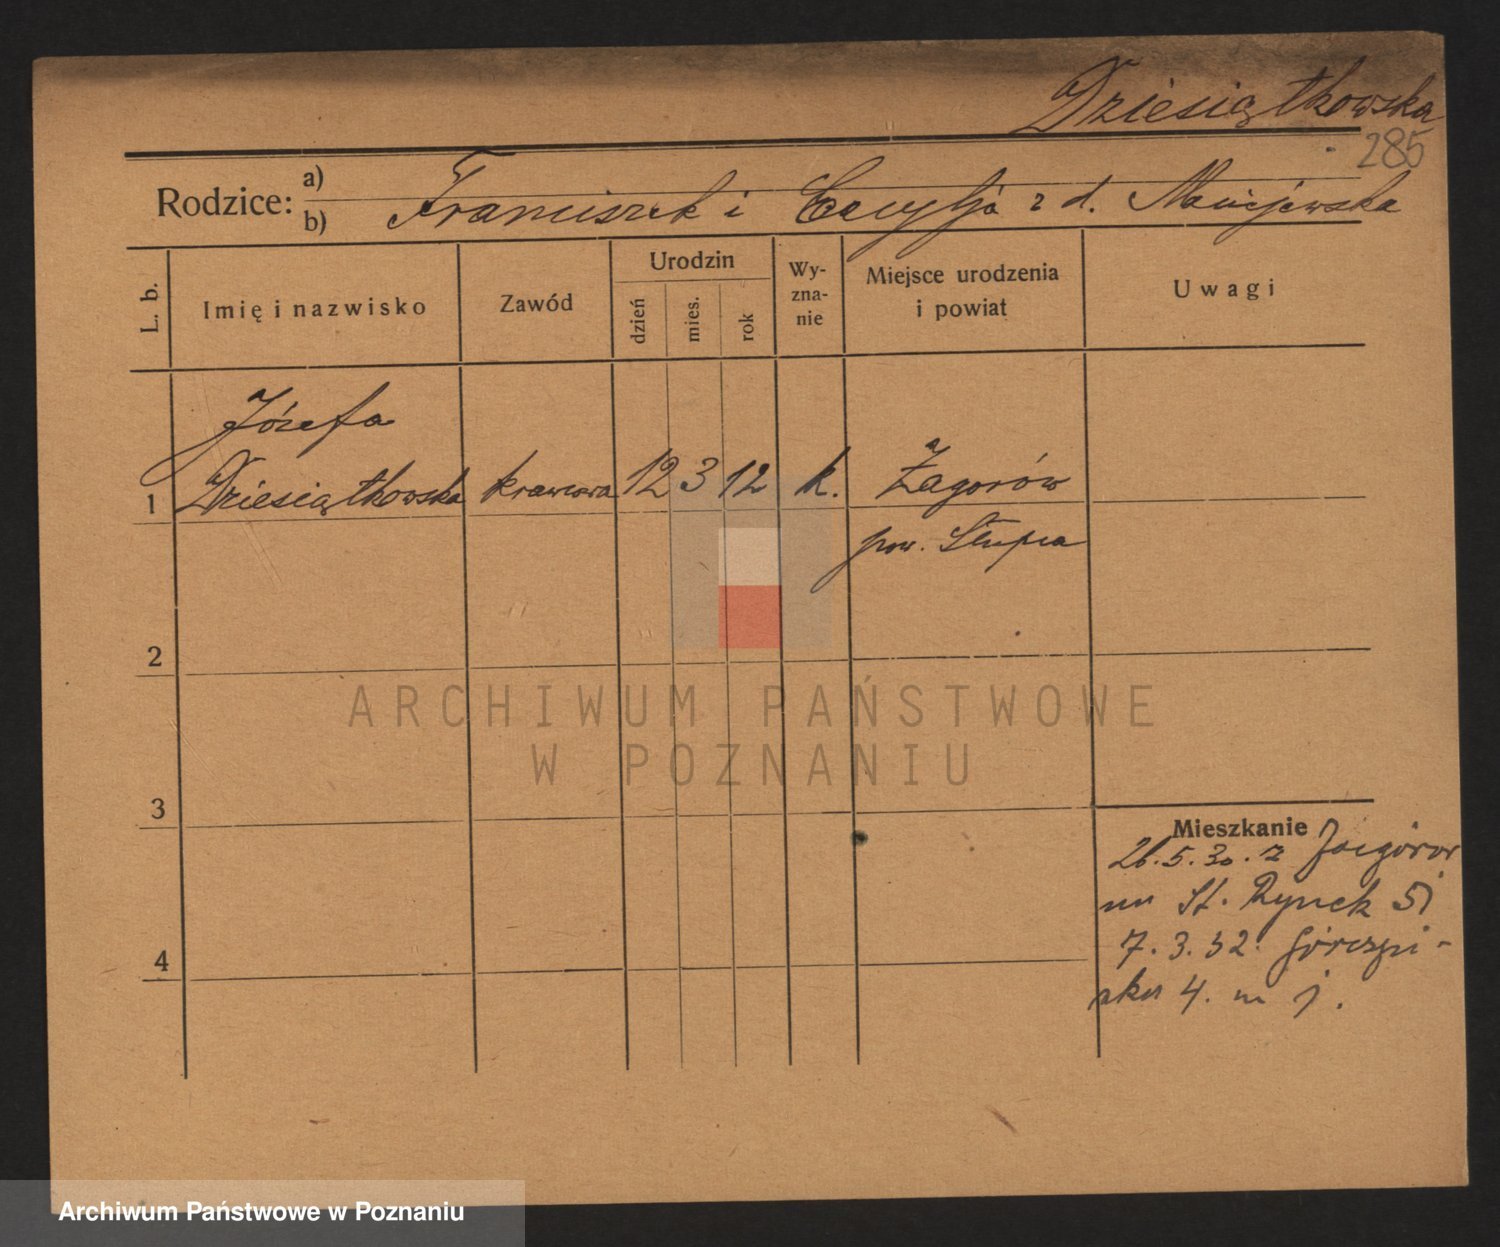 Dziesiątkowska
285
Rodzice:
a)
b) Franciszek i Cecylja z d. Maciejewska
L. b.
Imię i nazwisko
Zawód
Urodzin
dzień
mies.
rok
Wy-
zna-
nie
Miejsce urodzenia
i powiat
Uwagi
Józefa
1 Dziesiątkowska krawcowa 12 3 12 k. Zagorów
pow. Słupca
2
3
4
ARCHIWUM PAŃSTWOWE
W POZNANIU
Mieszkanie
26.5.30. z
St. Rynek 51
7.3.32.
ska 4. m
Archiwum Państwowe w Poznaniu